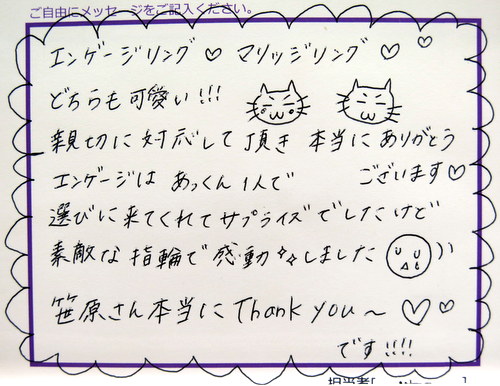 ご自由にメッセージをご記入ください。
エンゲージリング♡マリッジリング♡♡
どちらも可愛い!!!
親切に対応して頂き 本当にありがとう
ございます♡
エンゲージは あっくん1人で
選びに来てくれてサプライズでしたけど
素敵な指輪で感動しました
笹原さん本当にThank you～♡♡
です!!!!